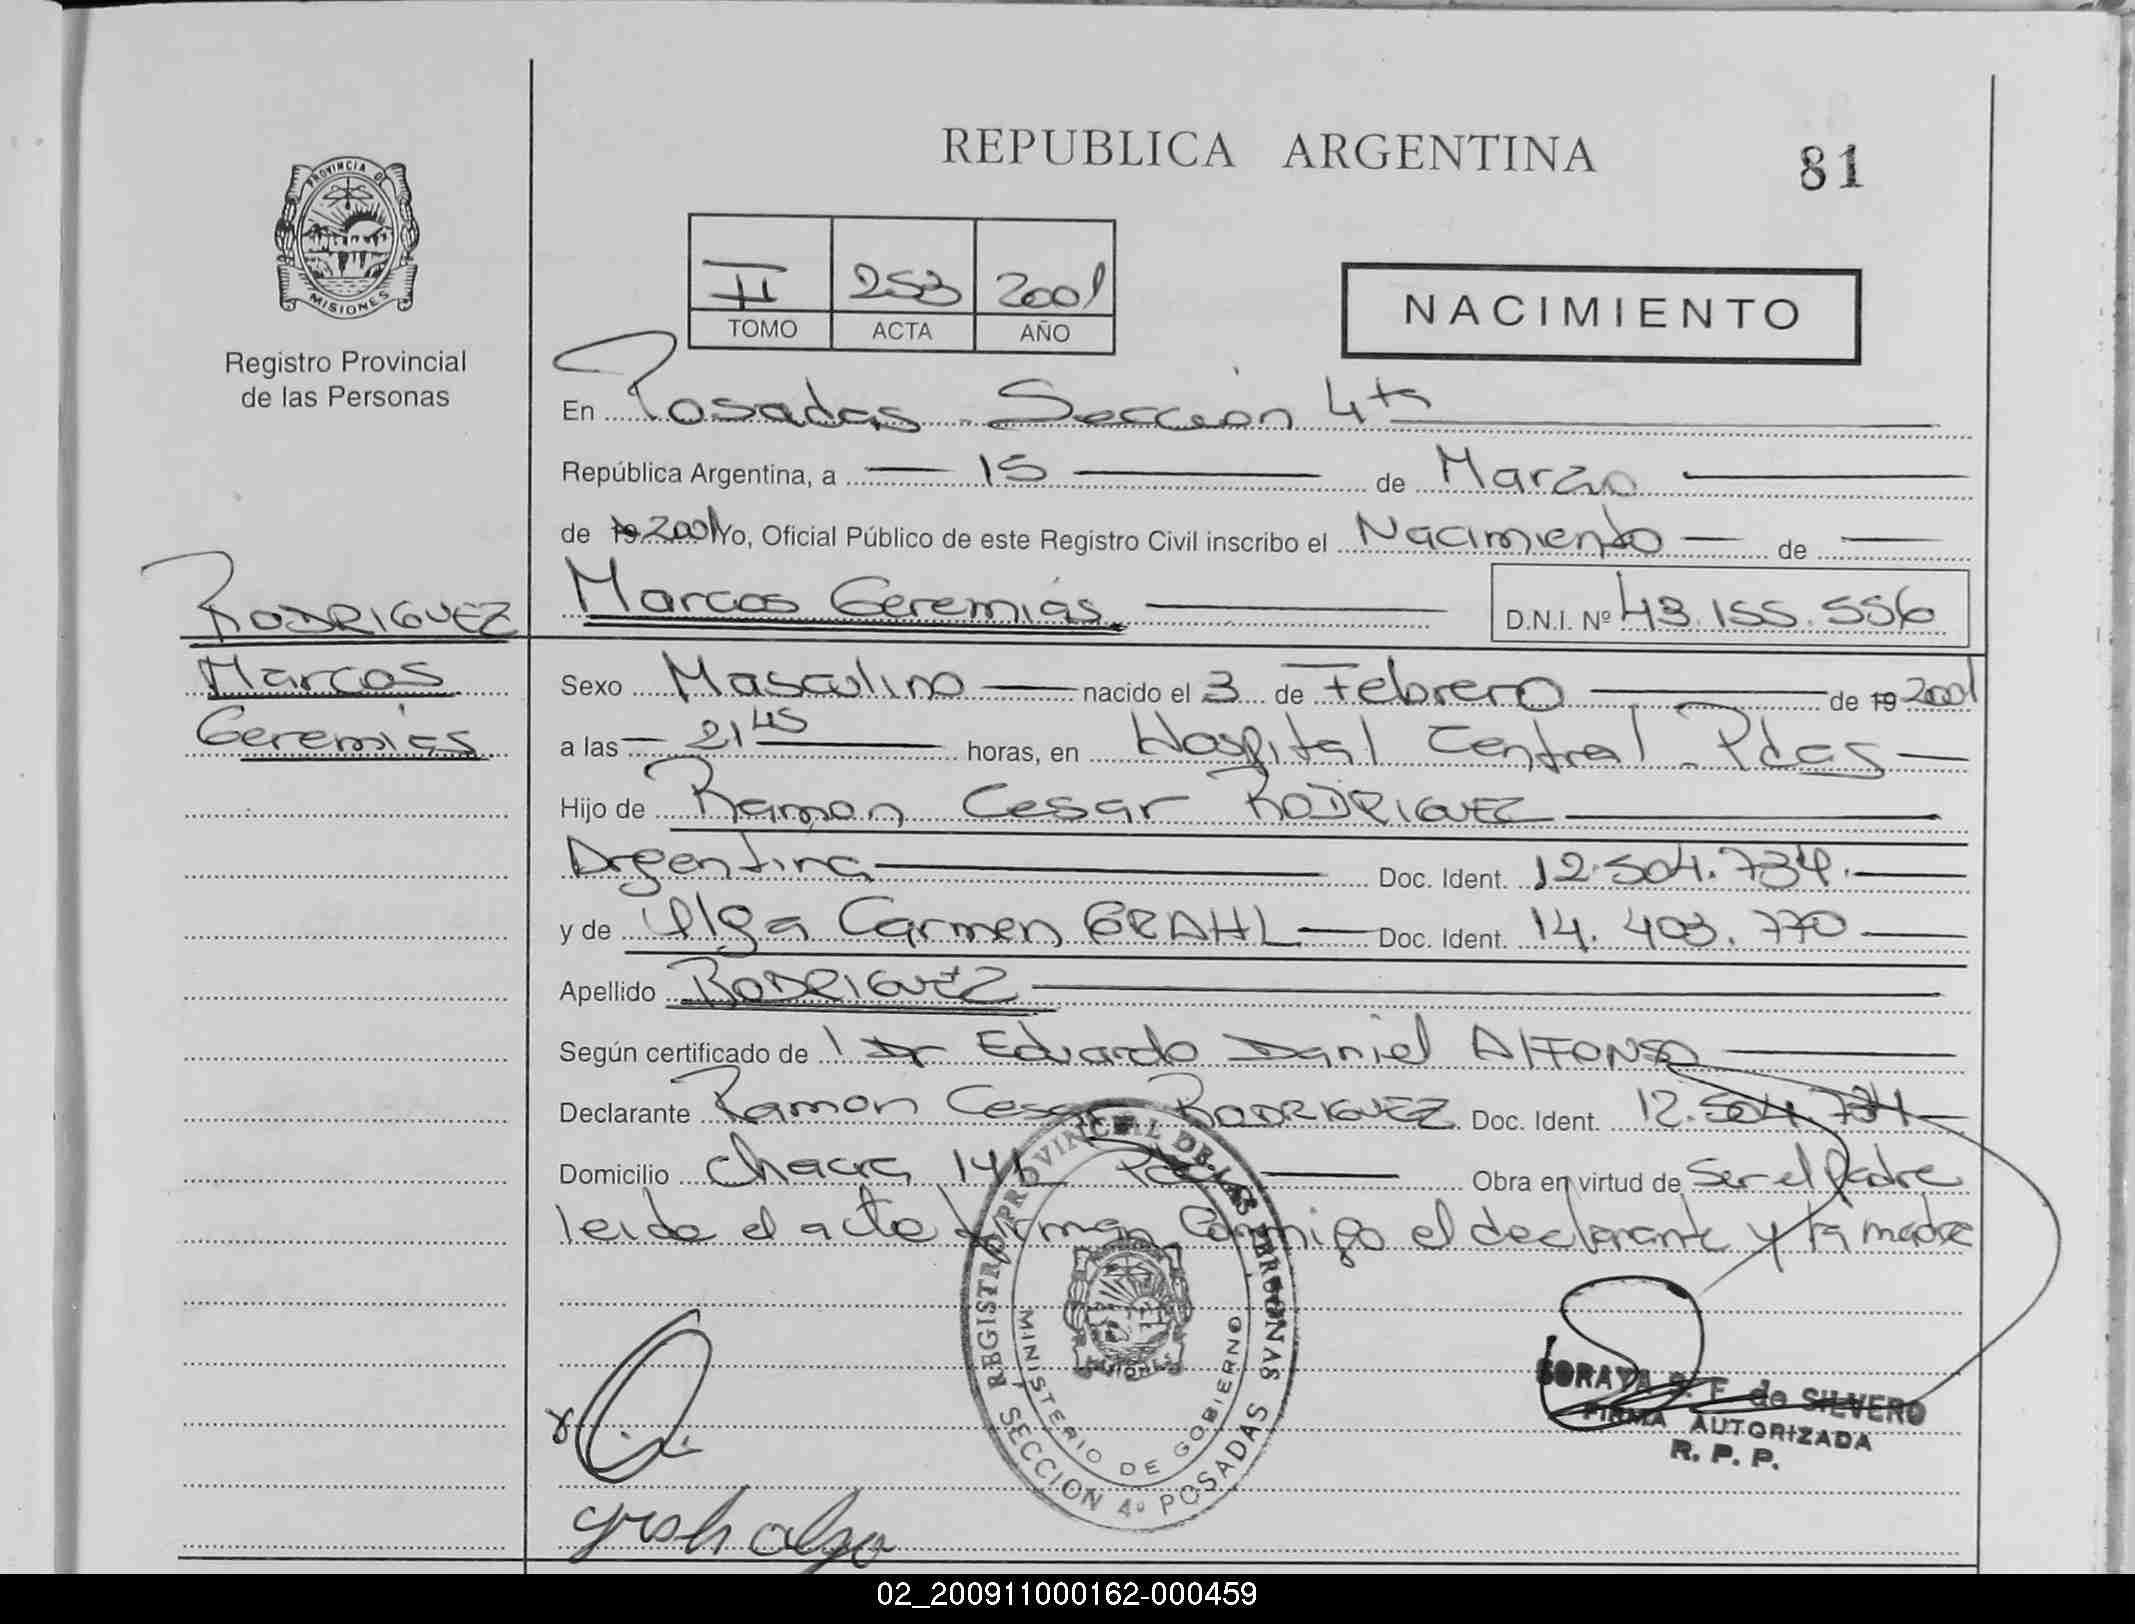 REPUBLICA ARGENTINA
81
PROVINCIA DE
MISIONES
Registro Provincial
de las Personas
II 253 2001
TOMO ACTA AÑO
NACIMIENTO
En Posadas Sección 4ta
República Argentina, a 15 de Marzo
de 19 2001 Yo, Oficial Público de este Registro Civil inscribo el Nacimiento de
RODRIGUEZ
Marcos
Geremias
Marcos Geremias D.N.I. Nº 43.155.556
Sexo Masculino nacido el 3 de Febrero de 19 2001
a las 21 45 horas, en Hospital Central Pdas
Hijo de Ramon Cesar RODRIGUEZ
Argentina Doc. Ident. 12.504.734
y de Olga Carmen GRAHL Doc. Ident. 14.403.770
Apellido RODRIGUEZ
Según certificado de l Dr Eduardo Daniel AlFONSO
Declarante Ramon Cesar RODRIGUEZ Doc. Ident. 12.504.734
Domicilio Chacra Obra en virtud de Ser el Padre
leida el acta firman Conmigo el declarante y la madre
REGISTRO PROVINCIAL DE LAS PERSONAS
MINISTERIO DE GOBIERNO
SECCION 4º POSADAS
SORAYA F. de SILVERO
FIRMA AUTORIZADA
R. P. P.
02_200911000162-000459